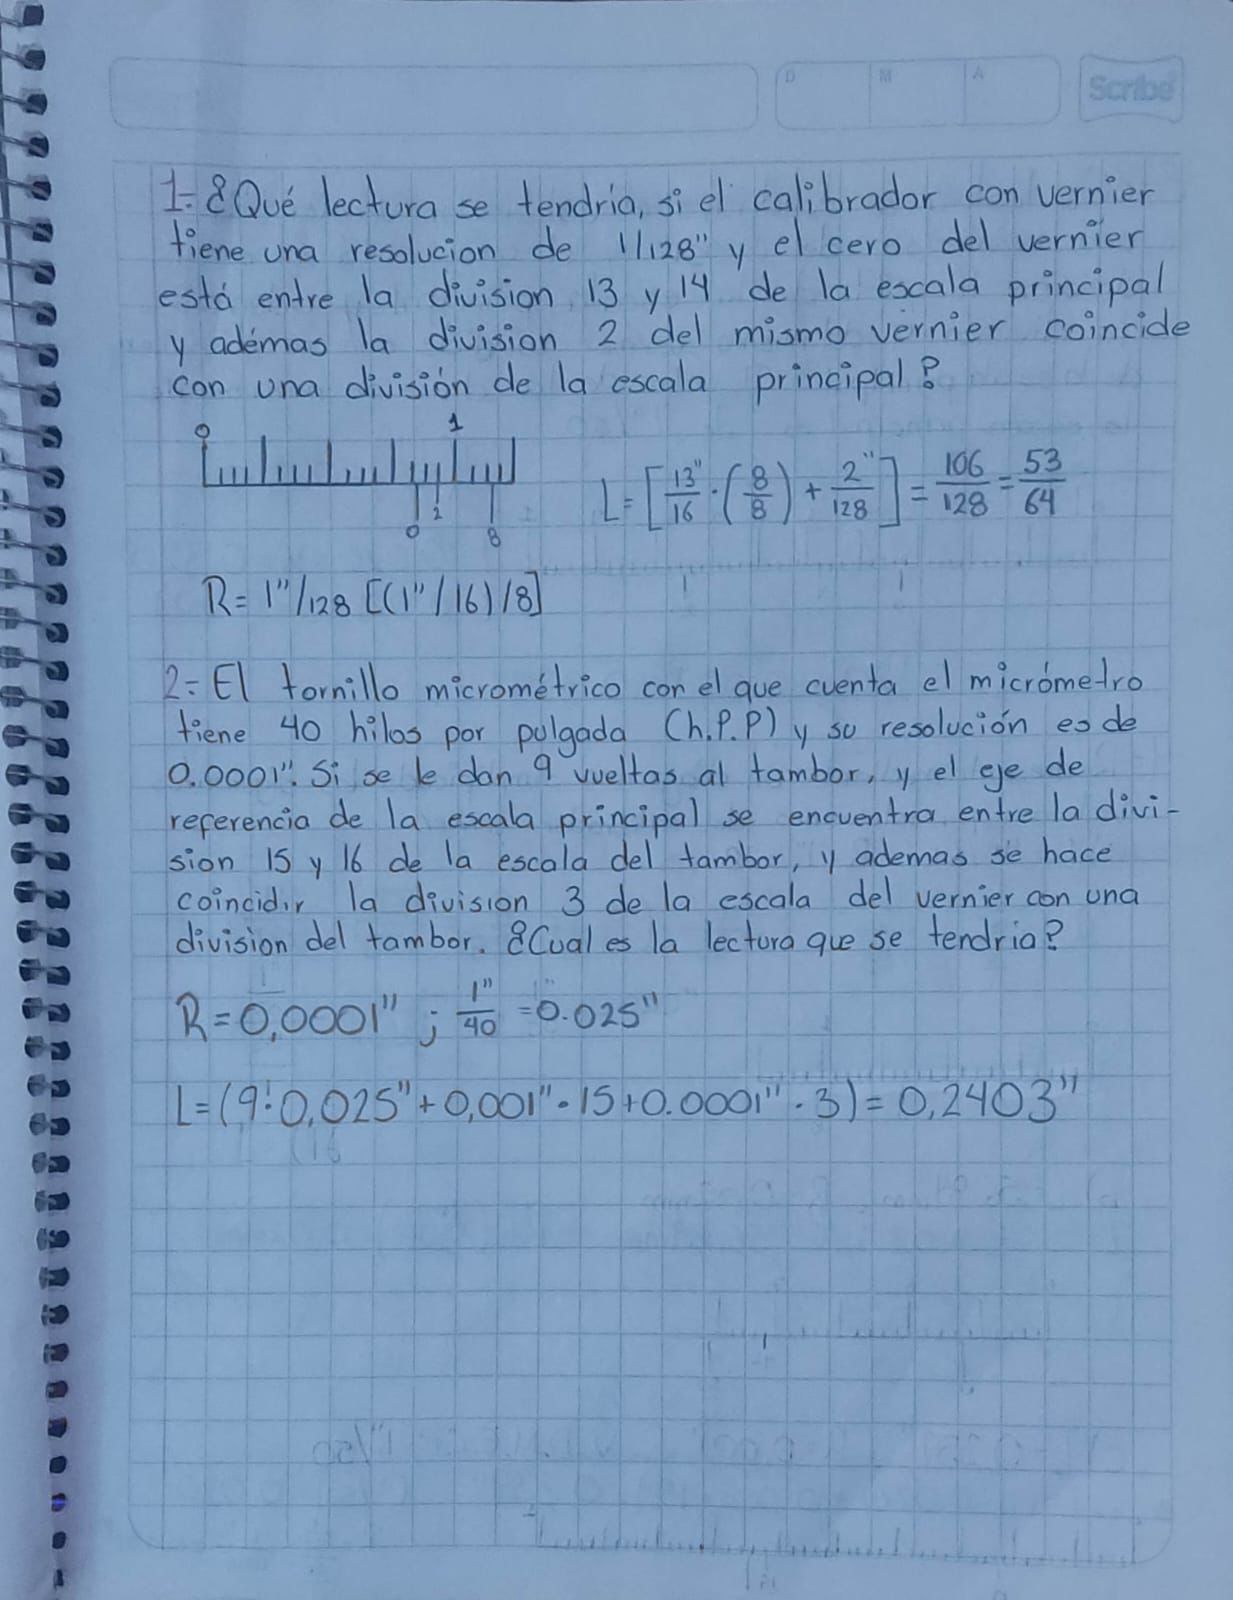 D M A Scribe
1.- ¿Qué lectura se tendria, si el calibrador con vernier
tiene una resolucion de 1/128" y el cero del vernier
está entre la division 13 y 14 de la escala principal
y adémas la division 2 del mismo vernier coincide
con una división de la escala principal?
0 1
0 2 8
L= [13"/16 · (8/8) + 2"/128] = 106/128 = 53/64
R= 1"/128 [(1"/16)/8]
2.- El tornillo micrométrico con el que cuenta el micrómetro
tiene 40 hilos por pulgada (h.P.P) y su resolución es de
0.0001". Si se le dan 9 vueltas al tambor, y el eje de
referencia de la escala principal se encuentra entre la divi-
sion 15 y 16 de la escala del tambor, y ademas se hace
coincidir la division 3 de la escala del vernier con una
division del tambor. ¿Cual es la lectura que se tendria?
R=0,0001" ; 1"/40 =0.025"
L=(9·0,025"+0,001"·15+0.0001"·3)=0,2403"